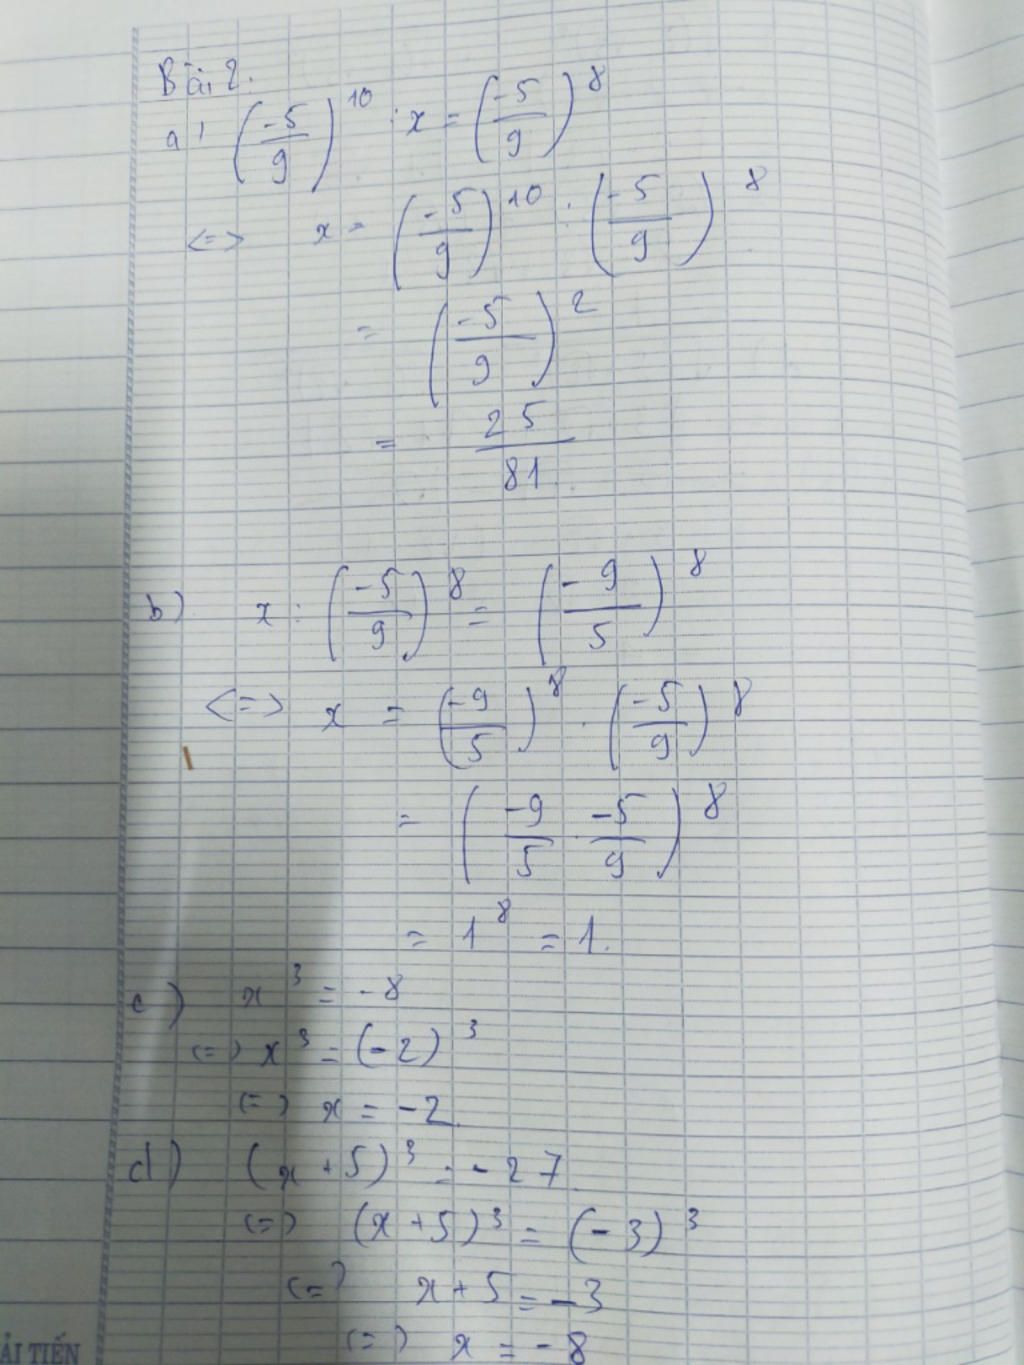 Bài 2.
a) (-5/9)^10 : x = (-5/9)^8
<=> x = (-5/9)^10 : (-5/9)^8
= (-5/9)^2
= 25/81
b) x : (-5/9)^8 = (-9/5)^8
<=> x = (-9/5)^8 . (-5/9)^8
= (-9/5 . -5/9)^8
= 1^8 = 1.
c) x^3 = -8
<=> x^3 = (-2)^3
<=> x = -2.
d) (x + 5)^3 = -27
<=> (x + 5)^3 = (-3)^3
<=> x + 5 = -3
<=> x = -8
ẢI TIẾN